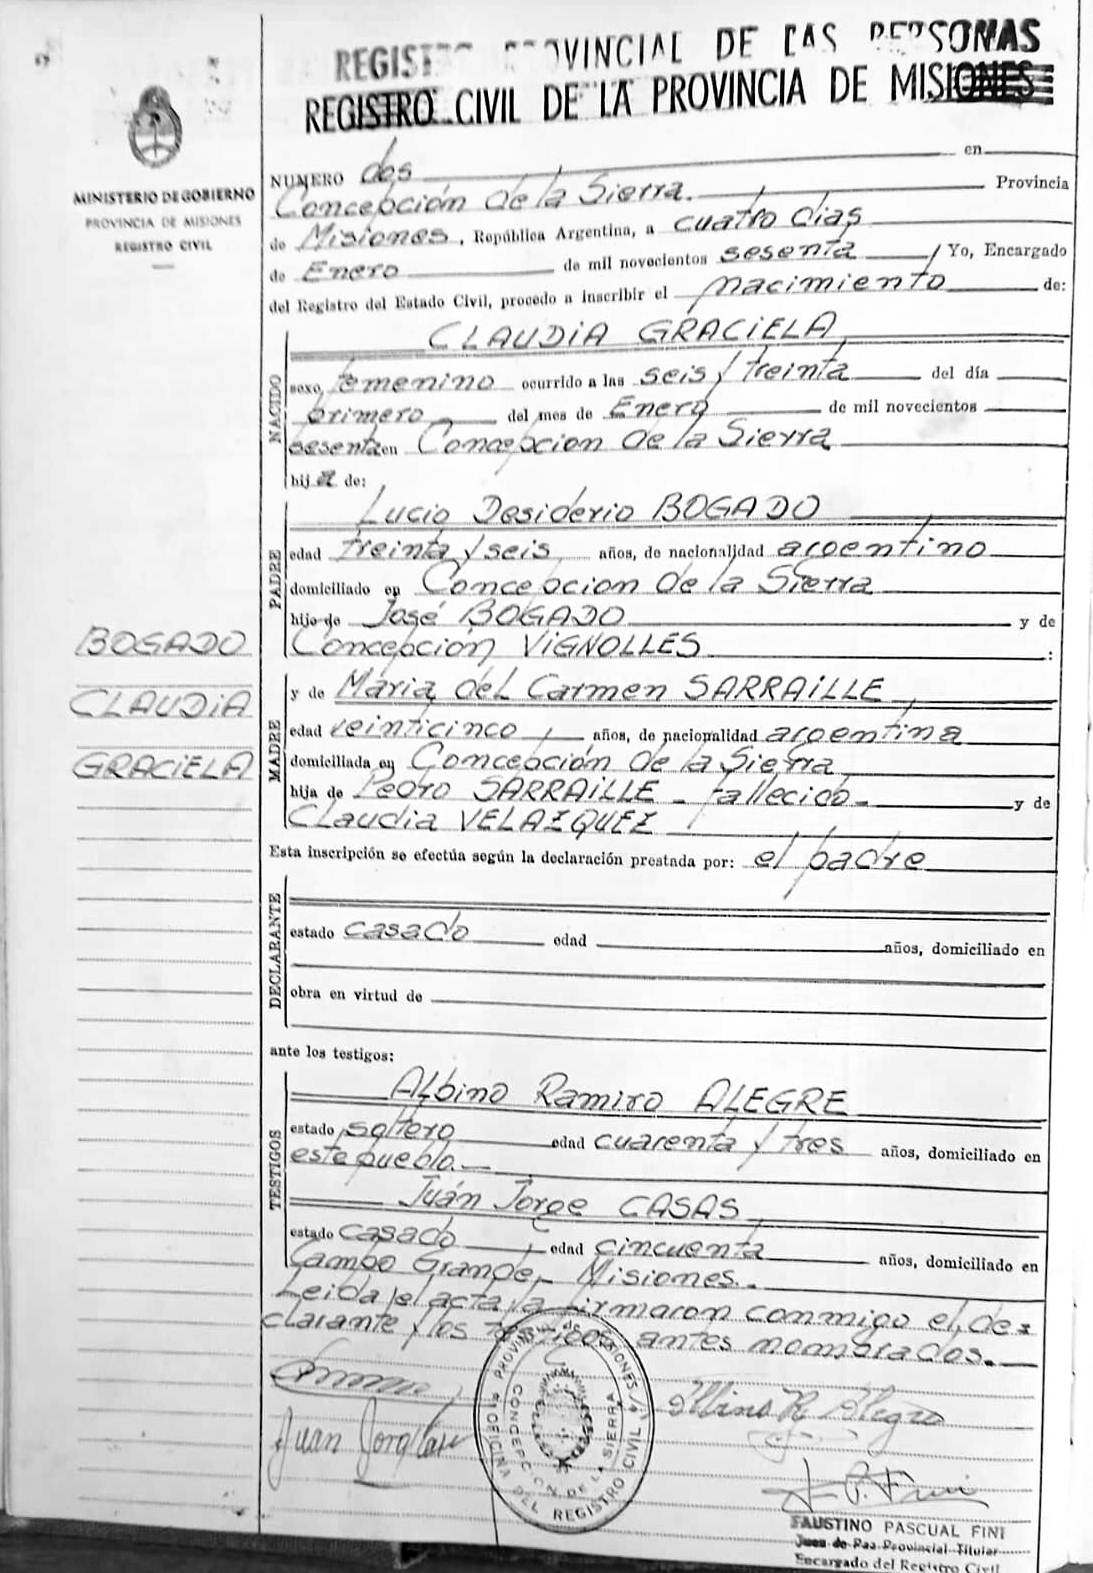 REGISTRO PROVINCIAL DE LAS PERSONAS
REGISTRO CIVIL DE LA PROVINCIA DE MISIONES
MINISTERIO DE GOBIERNO
PROVINCIA DE MISIONES
REGISTRO CIVIL
NUMERO dos en
Concepción de la Sierra. Provincia
de Misiones, República Argentina, a cuatro dias
de Enero de mil novecientos sesenta Yo, Encargado
del Registro del Estado Civil, procedo a inscribir el nacimiento de:
NACIDO
CLAUDIA GRACIELA
sexo femenino ocurrido a las seis y treinta del día
primero del mes de Enero de mil novecientos
sesenta en Concepcion de la Sierra
hija de:
PADRE
Lucio Desiderio BOGADO
edad treinta y seis años, de nacionalidad argentino
domiciliado en Concepcion de la Sierra
hijo de José BOGADO y de
Concepción VIGNOLLES :
BOGADO
CLAUDIA
GRACIELA
MADRE
y de Maria del Carmen SARRAILLE
edad veinticinco años, de nacionalidad argentina
domiciliada en Concepción de la Sierra
hija de Pedro SARRAILLE - fallecido - y de
Claudia VELAZQUEZ
Esta inscripción se efectúa según la declaración prestada por: el padre
DECLARANTE
estado casado edad años, domiciliado en
obra en virtud de
ante los testigos:
TESTIGOS
Albino Ramiro ALEGRE
estado soltero edad cuarenta y tres años, domiciliado en
este pueblo.-
Juán Jorge CASAS
estado casado edad cincuenta años, domiciliado en
Campo Grande, Misiones.-
Leida el acta la firmaron conmigo el de=
clarante y los testigos antes nombrados.-
Albino R Alegre
Juan Jorge Casas
PROVINCIA DE MISIONES
OFICINA DEL REGISTRO CIVIL
CONCEPCION DE LA SIERRA
FAUSTINO PASCUAL FINI
Juez de Paz Provincial Titular
Encargado del Registro Civil